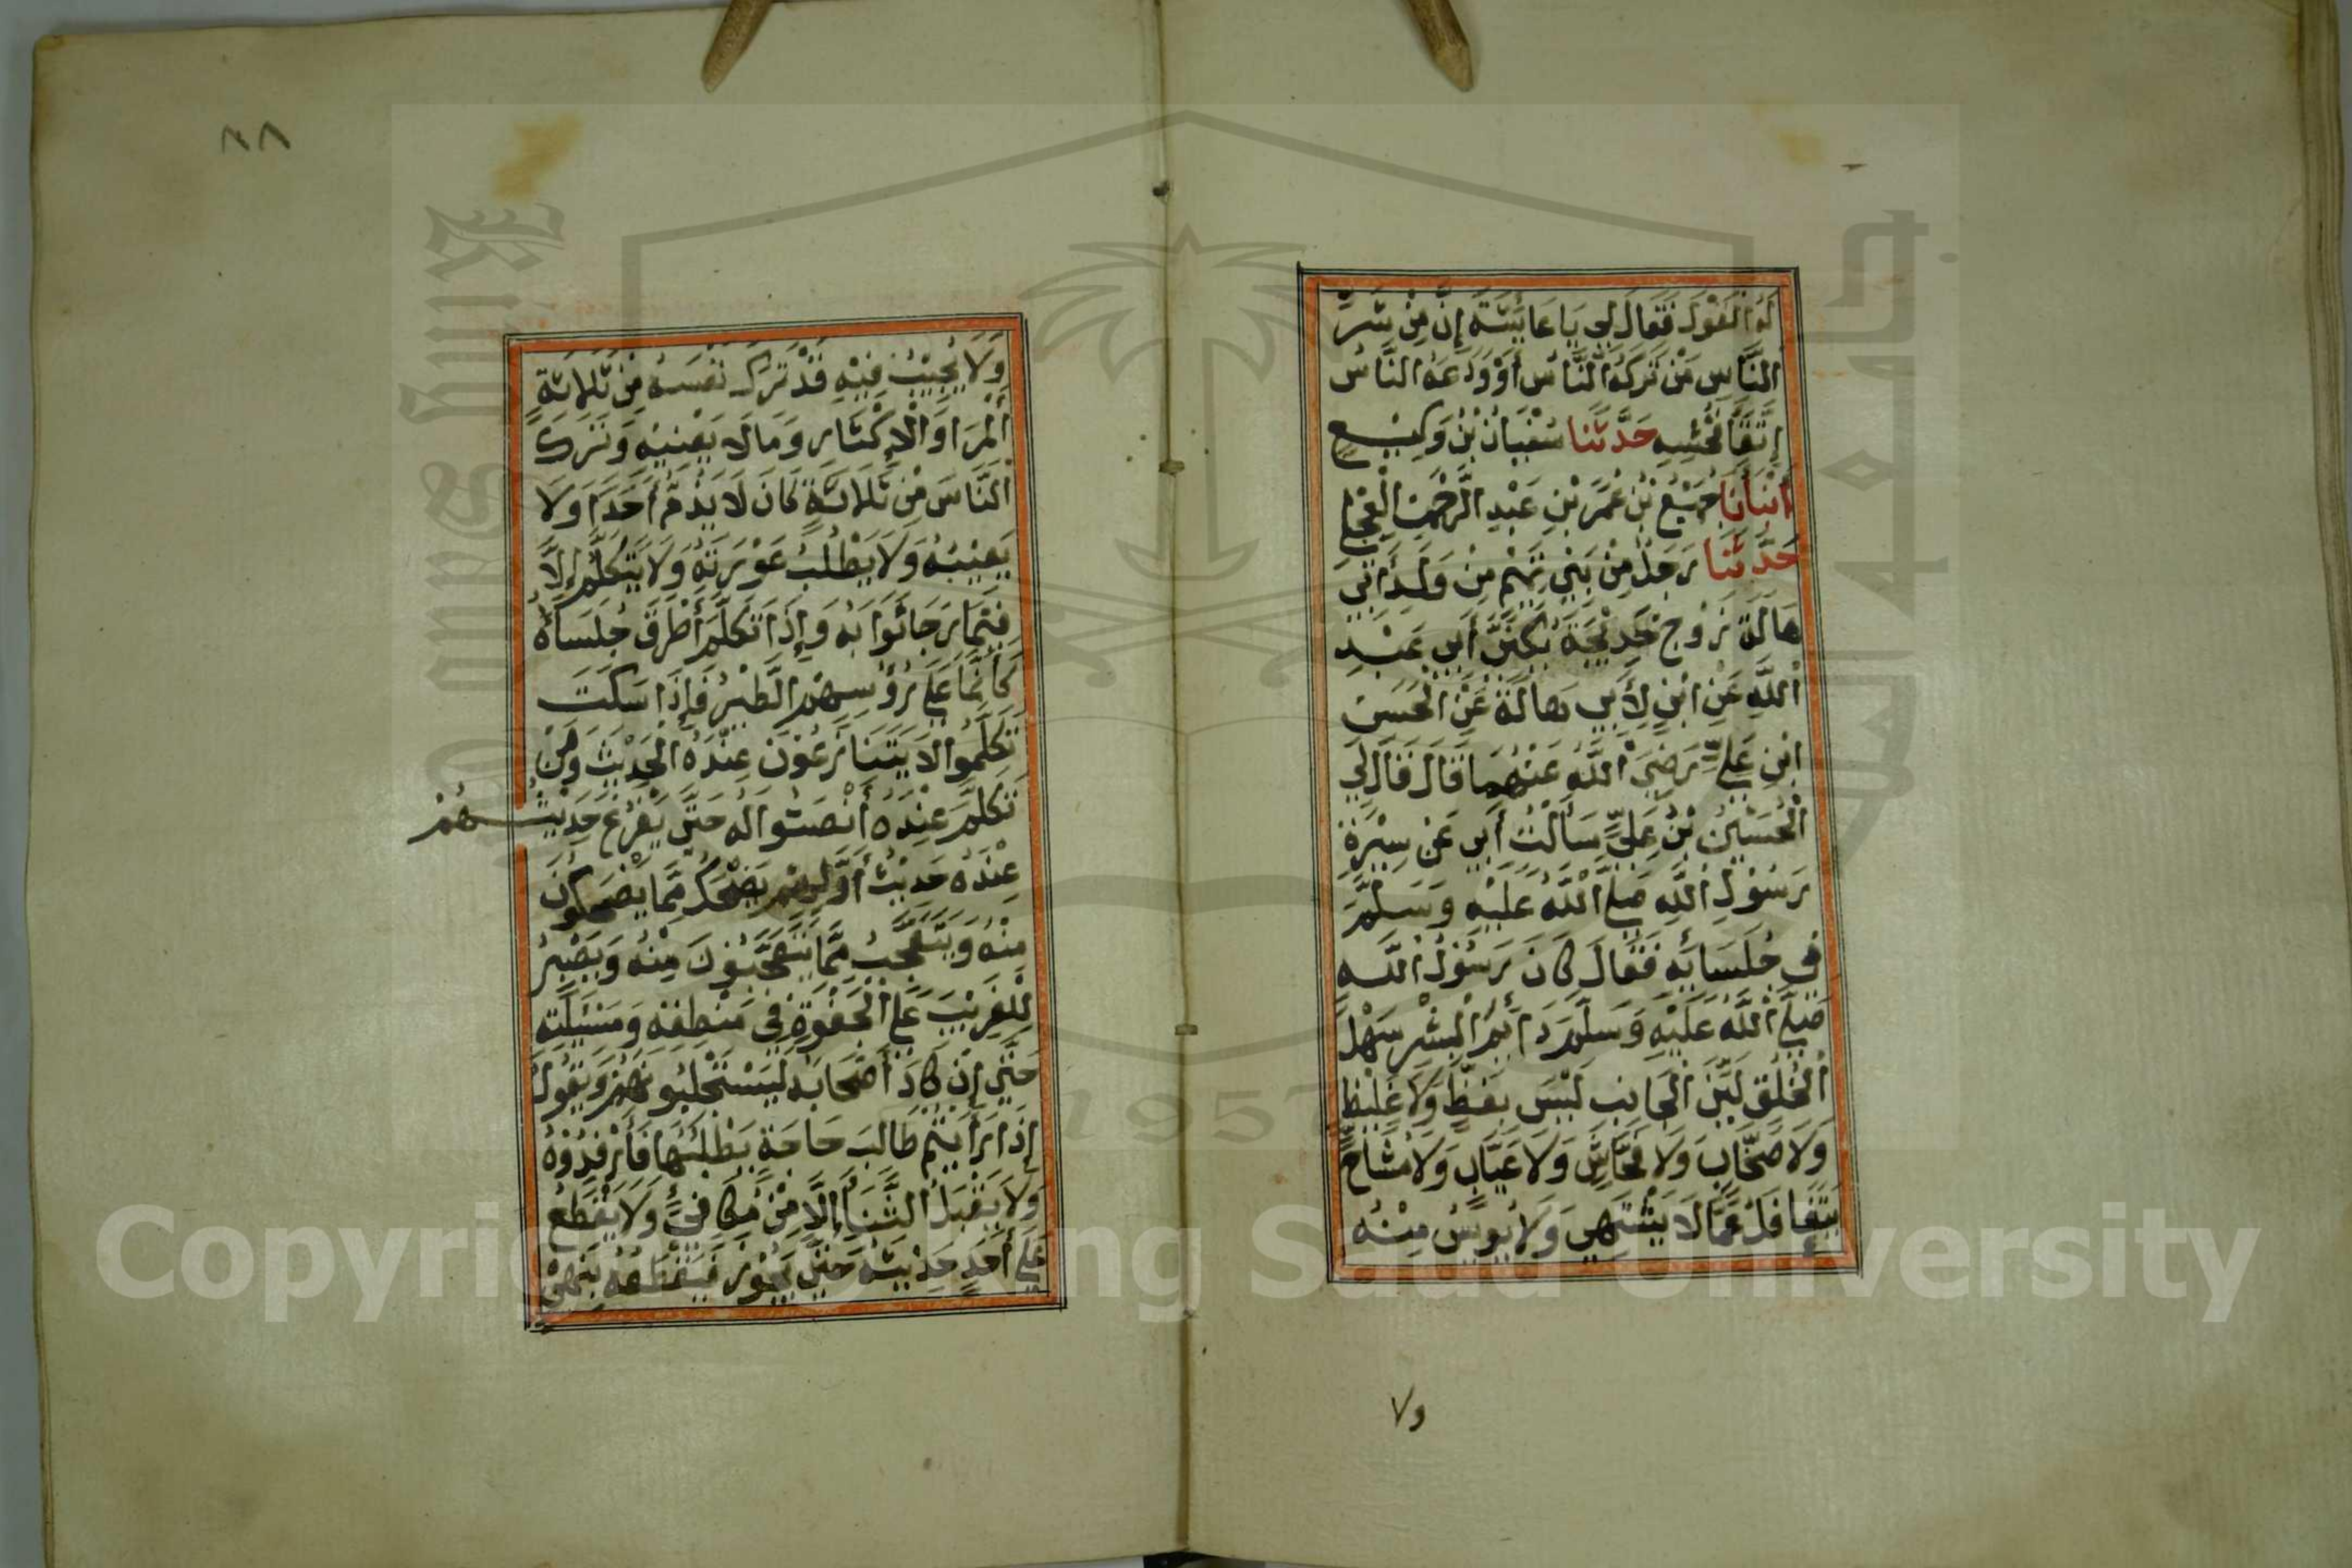 لَهُ الْقَوْلَ فَقَالَ لِي يَا عَايِشَةُ إِنَّ مِنْ شَرِّ
النَّاسِ مَنْ تَرَكَهُ النَّاسُ أَوْ وَدَعَهُ النَّاسُ
اِتِّقَآ فُحْشِهِ حَدَّثَنَا سُفْيَانُ بْنُ وَكِيْعٍ
أَنْبَأَنَا جُمَيْعُ بْنُ عُمَرَ بْنِ عَبْدِ الرَّحْمٰنِ الْعِجْلِي
حَدَّثَنَا رَجُلٌ مِنْ بَنِي تَمِيْمٍ مِنْ وَلَدِ أَبِي
هَالَةَ زَوْجِ خَدِيْجَةَ يُكَنَّى أَبِي عَبْدِ
اللَّهِ عَنِ ابْنٍ لِأَبِي هَالَةَ عَنِ الْحَسَنِ
ابْنِ عَلِيٍّ رَضِيَ اللَّهُ عَنْهُمَا قَالَ قَالَ لِي
الْحُسَيْنُ بْنُ عَلِيٍّ سَأَلْتُ أَبِي عَنْ سِيْرَةِ
رَسُوْلِ اللَّهِ صَلَّى اللَّهُ عَلَيْهِ وَسَلَّمَ
فِي جُلَسَائِهِ فَقَالَ كَانَ رَسُوْلُ اللَّهِ
صَلَّى اللَّهُ عَلَيْهِ وَسَلَّمَ دَائِمَ الْبِشْرِ سَهْلَ
الْخُلُقِ لَيِّنَ الْجَانِبِ لَيْسَ بِفَظٍّ وَلَا غَلِيْظٍ
وَلَا صَخَّابٍ وَلَا فَحَّاشٍ وَلَا عَيَّابٍ وَلَا مُشَاحٍّ
يَتَغَافَلُ عَمَّا لَا يَشْتَهِي وَلَا يُويِسُ مِنْهُ
٧و
٢٨
وَلَا يُجِيْبُ فِيْهِ قَدْ تَرَكَ نَفْسَهُ مِنْ ثَلَاثَةٍ
الْمِرَاءِ وَالْإِكْثَارِ وَمَا لَا يَعْنِيْهِ وَتَرَكَ
النَّاسَ مِنْ ثَلَاثَةٍ كَانَ لَا يَذُمُّ أَحَدًا وَلَا
يَعِيْبُهُ وَلَا يَطْلُبُ عَوْرَتَهُ وَلَا يَتَكَلَّمُ إِلَّا
فِيْمَا رَجَا ثَوَابَهُ وَإِذَا تَكَلَّمَ أَطْرَقَ جُلَسَاؤُهُ
كَأَنَّمَا عَلَى رُؤُسِهِمُ الطَّيْرُ فَإِذَا سَكَتَ
تَكَلَّمُوا لَا يَتَنَازَعُوْنَ عِنْدَهُ الْحَدِيْثَ وَمَنْ
تَكَلَّمَ عِنْدَهُ أَنْصَتُوا لَهُ حَتَّى يَفْرُغَ حَدِيْثُهُمْ
عِنْدَهُ حَدِيْثُ أَوَّلِهِمْ يَضْحَكُ مِمَّا يَضْحَكُوْنَ
مِنْهُ وَيَتَعَجَّبُ مِمَّا يَتَعَجَّبُوْنَ مِنْهُ وَيَصْبِرُ
لِلْغَرِيْبِ عَلَى الْجَفْوَةِ فِي مَنْطِقِهِ وَمَسْئَلَتِهِ
حَتَّى إِنْ كَادَ أَصْحَابُهُ لَيَسْتَجْلِبُونَهُمْ وَيَقُوْلُ
إِذَا رَأَيْتُمْ طَالِبَ حَاجَةٍ يَطْلُبُهَا فَأَرْفِدُوْهُ
وَلَا يَقْبَلُ الثَّنَاءَ إِلَّا مِنْ مُكَافِيٍّ وَلَا يَقْطَعُ
عَلَى أَحَدٍ حَدِيْثَهُ حَتَّى يَجُوْزَ فَيَقْطَعُهُ بِنَهْيٍ
Copyright © King Saud University
1957